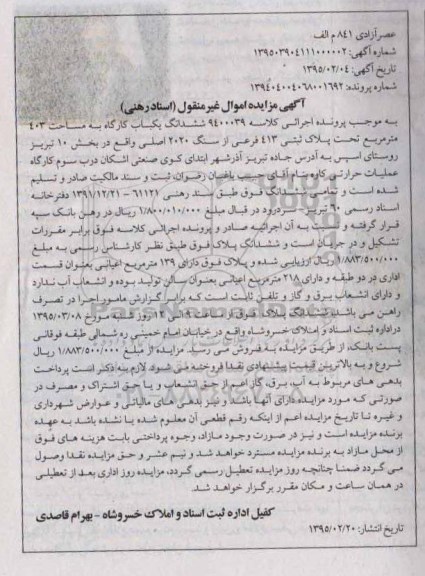 عصرآزادی ۸۴۱ م الف
شماره آگهی: ۱۳۹۵۰۳۹۰۴۱۱۱۰۰۰۰۰۲
تاریخ آگهی: ۱۳۹۵/۰۲/۰۴
شماره پرونده: ۱۳۹۴۰۴۰۰۴۰۶۸۰۰۱۶۹۲
آگهی مزایده اموال غیر منقول (اسناد رهنی)
به موجب پرونده اجرائی کلاسه ۹۴۰۰۰۳۹ ششدانگ یکباب کارگاه به مساحت ۴۰۳
مترمربع تحت پلاک ثبتی ۴۱۳ فرعی از سنگ ۲۰۲۰ اصلی واقع در بخش ۱۰ تبریز
روستای اسپس به آدرس جاده تبریز آذرشهر ابتدای کوی صنعتی اشکان درب سوم کارگاه
عملیات حرارتی کاوه بنام آقای حبیب باغبان رضوان، ثبت و سند مالکیت صادر و تسلیم
شده است و تمامی ششدانگ فوق طبق سند رهنی ۶۱۱۲۱ - ۱۳۹۱/۱۲/۲۱ دفترخانه
اسناد رسمی ۶۰ تبریز - سردرود در قبال مبلغ ۱/۸۰۰/۰۱۰/۰۰۰ ریال در رهن بانک سپه
قرار گرفته و نسبت به آن اجرائیه صادر و پرونده اجرائی کلاسه فوق برابر مقررات
تشکیل و در جریان است و ششدانگ پلاک فوق طبق نظر کارشناس رسمی به مبلغ
۱/۸۸۳/۵۰۰/۰۰۰ ریال ارزیابی شده و پلاک فوق دارای ۱۳۹ مترمربع اعیانی بعنوان قسمت
اداری در دو طبقه و دارای ۲۱۸ مترمربع اعیانی بعنوان سالن تولید بوده و انشعاب آب ندارد
و دارای انشعاب برق و گاز و تلفن ثابت است که برابر گزارش مامور اجرا در تصرف
راهن می باشد، ششدانگ پلاک فوق از ساعت ۹ الی ۱۲ روز شنبه مورخ ۱۳۹۵/۰۳/۰۸
در اداره ثبت اسناد و املاک خسروشاه واقع در خیابان امام خمینی ره شمالی طبقه فوقانی
پست بانک، از طریق مزایده به فروش می رسد. مزایده از مبلغ ۱/۸۸۳/۵۰۰/۰۰۰ ریال
شروع و به بالاترین قیمت پیشنهادی نقدا فروخته می شود. لازم به ذکر است پرداخت
بدهی های مربوط به آب، برق، گاز اعم از حق انشعاب و یا حق اشتراک و مصرف در
صورتی که مورد مزایده دارای آنها باشد و نیز بدهی های مالیاتی و عوارض شهرداری
و غیره تا تاریخ مزایده اعم از اینکه رقم قطعی آن معلوم شده یا نشده باشد به عهده
برنده مزایده است و نیز در صورت وجود مازاد، وجوه پرداختی بابت هزینه های فوق
از محل مازاد به برنده مزایده مسترد خواهد شد و نیم عشر و حق مزایده نقدا وصول
می گردد ضمنا چنانچه روز مزایده تعطیل رسمی گردد، مزایده روز اداری بعد از تعطیلی
در همان ساعت و مکان مقرر برگزار خواهد شد.
کفیل اداره ثبت اسناد و املاک خسروشاه - بهرام قاصدی
تاریخ انتشار: ۱۳۹۵/۰۲/۲۰